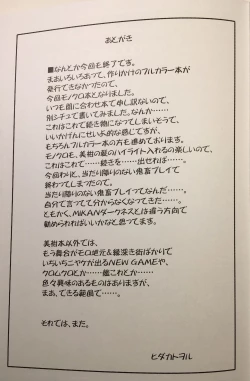 あとがき
■なんとか今回も終了です。
まあいろいろあって、作りかけのフルカラー本が
発行できなかったので、
今回モノクロ本となりました。
いつも間に合わせ本で申し訳ないので、
別シチュで書いてみました。なんか……
これはこれで続き物になってしまいそうで、
いいかげんにせい的な感じですが、
もちろんフルカラー本の方も進めております。
モノクロも、美樹の髪のハイライト入れるの楽しいので、
これはこれで……続きを……出せれば……。
今回わりと、当たり障りのない鬼畜プレイで
終わってしまったので。
当たり障りのない鬼畜プレイってなんだ……。
自分で言ってて分からなくなってきた……。
ともかく、MiKANダークネスとは違う方向で
勧められればいいかなと思ってます。
美樹本以外では、
もう舞台がモロ地元&縄深き街ばかりで
いちいちニヤケが出るNEW GAMEや、
クロムクロとか……艦これとか……
色々興味のあるものはありますが、
まあ、できる範囲で……。
それでは、また。
ヒダカトヲル